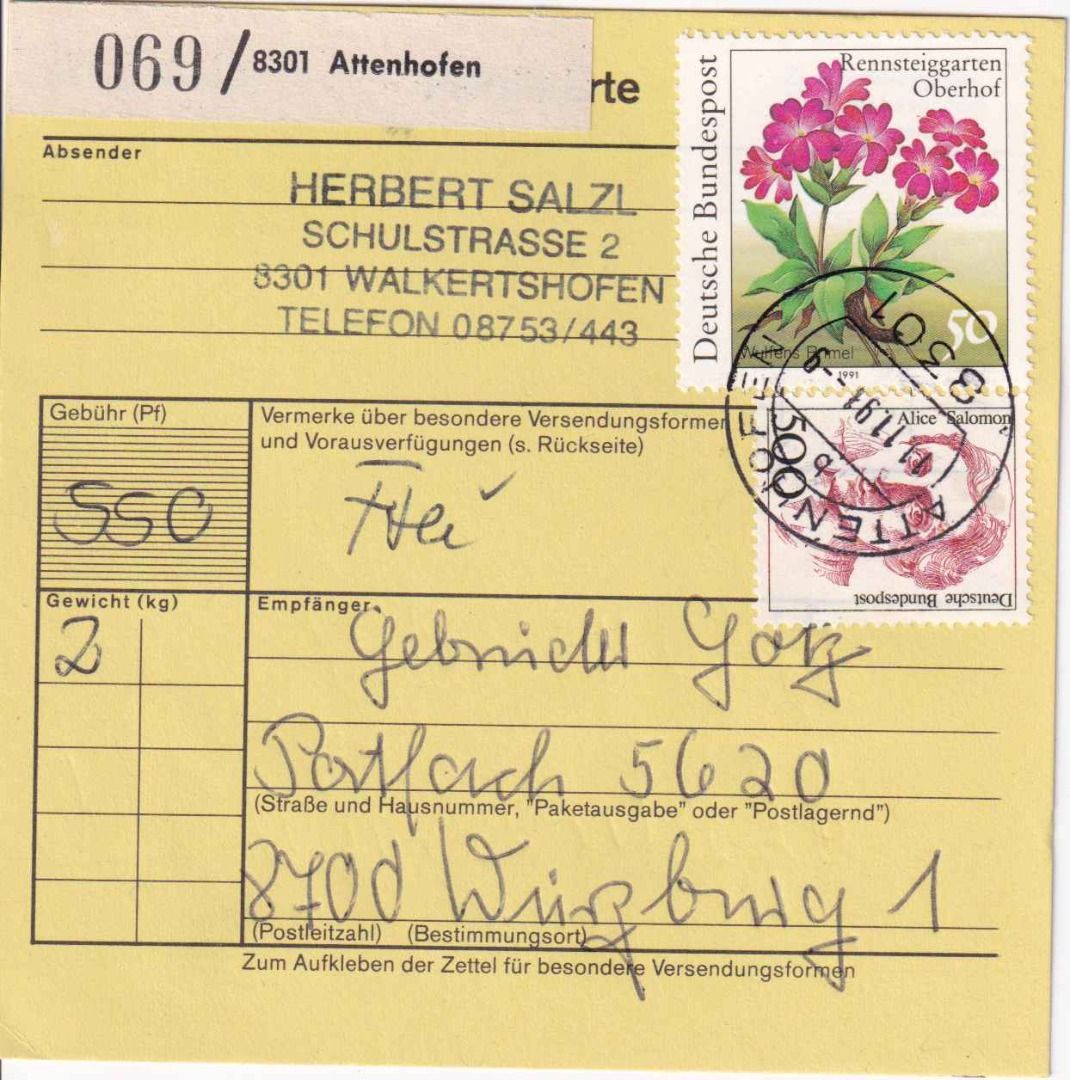 069 / 8301 Attenhofen
rte
Absender
HERBERT SALZL
SCHULSTRASSE 2
8301 WALKERTSHOFEN
TELEFON 08753/443
Deutsche Bundespost
Rennsteiggarten
Oberhof
50
Wulfens Primel
1991
8301
11.11.91-9
b
ATTENHOFEN
Alice Salomon
500
Deutsche Bundespost
Gebühr (Pf)
550
Vermerke über besondere Versendungsformen
und Vorausverfügungen (s. Rückseite)
Gewicht (kg)
2
Empfänger
Gebrüder Götz
Postfach 5620
(Straße und Hausnummer, "Paketausgabe" oder "Postlagernd")
8700 Würzburg 1
(Postleitzahl) (Bestimmungsort)
Zum Aufkleben der Zettel für besondere Versendungsformen